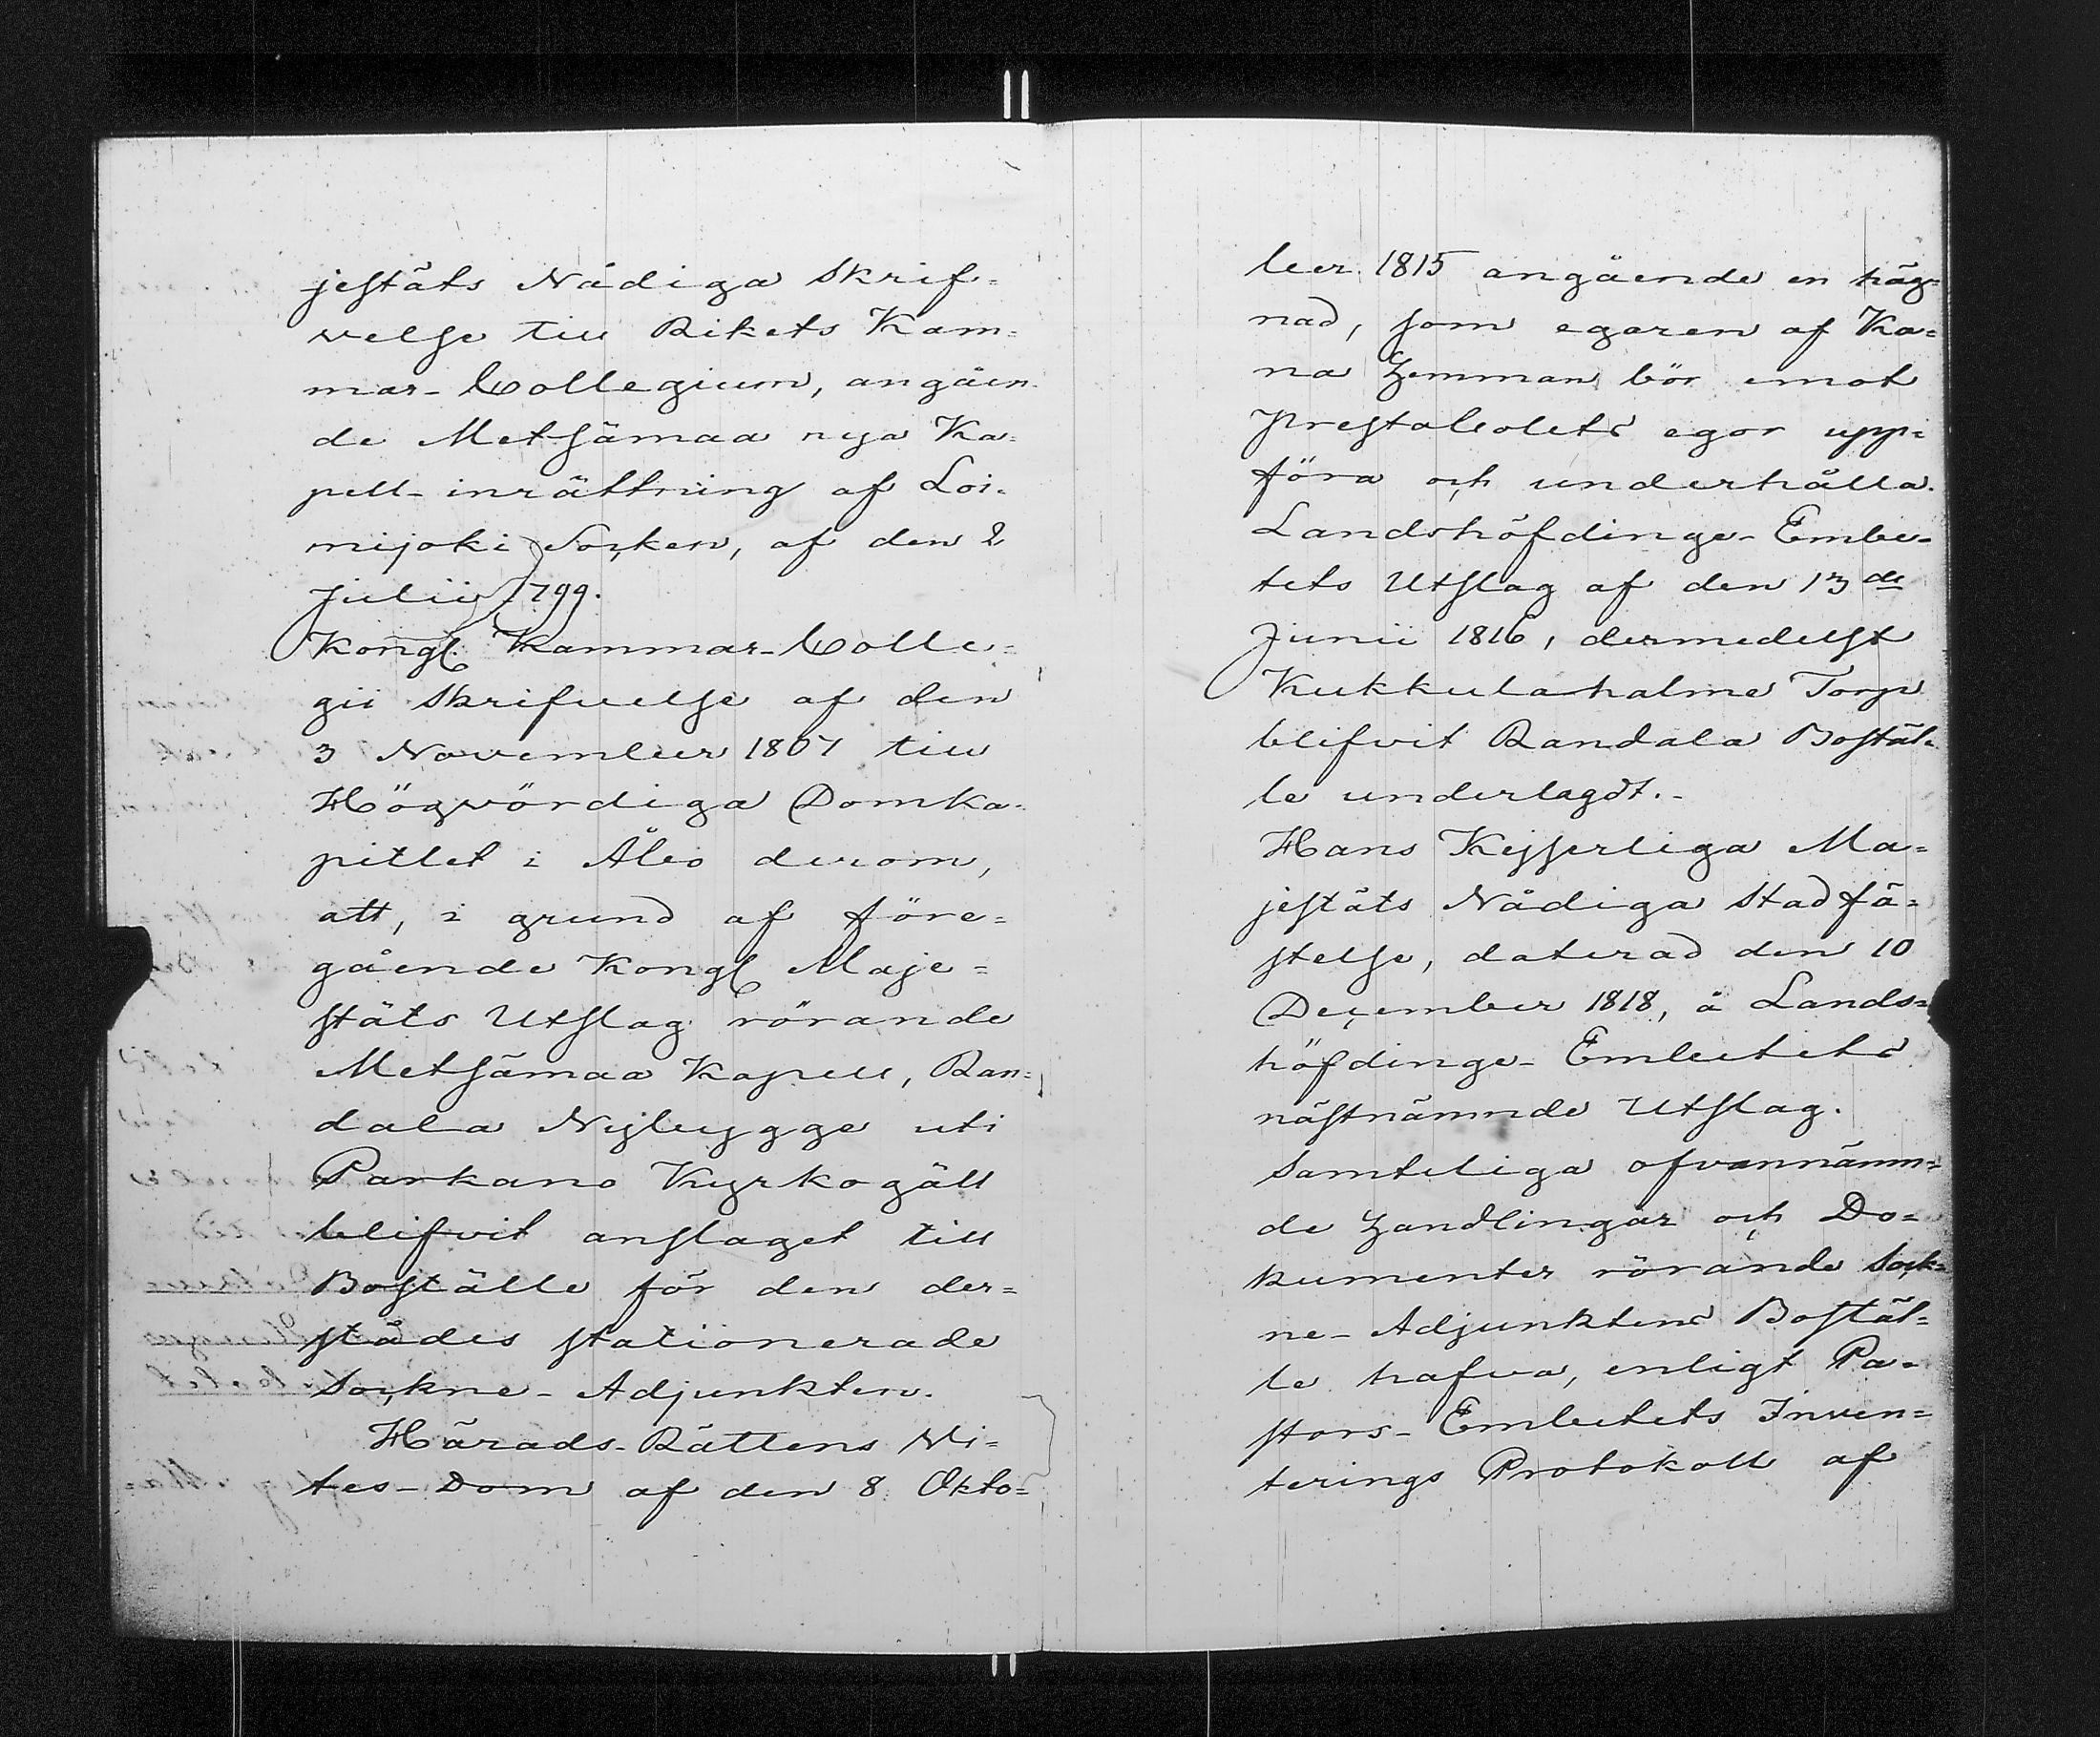 jestäts Nådiga Skrif-
velse till Rikets Kam-
mar-Collegium, angåen-
de Metsämaa nya Ka-
pell-inrättning af Loi-
mijoki Socken, af den 2
Julii 1799.
Kongl. Kammar-Colle-
gii Skrifvelse af den
3 November 1807 till
Högvördiga Domka-
pitlet i Åbo derom,
att, i grund af före-
gående Kongl. Maje-
stäts Utslag rörande
Metsämaa Kapell, Ran-
dala Nybygge uti
Parkano Kyrkogäll
blifvit anslaget till
Boställe för den der-
städes stationerade
Sockne-Adjunkten.
Härads-Rättens Vi-
tes-Dom af den 8 Okto-
ber 1815 angående en häg-
nad, som egaren af Ka-
na Hemman bör emot
Prestabolets egor upp-
föra och underhålla.
Landshöfdinge-Embe-
tets Utslag af den 13de
Junii 1816, dermedelst
Kukkulahalme Torp
blifvit Randala Bostäl-
le underlagdt.-
Hans Kejserliga Ma-
jestäts Nådiga Stadfä-
stelse, daterad den 10
December 1818, å Lands-
höfdinge-Embetets
nästnämnde Utslag.
Samteliga ofvannämn-
de Handlingar och Do-
kumenter rörande Sock-
ne-Adjunktens Bostäl-
le hafva, enligt Pa-
stors-Embetets Inven-
terings Protokoll af